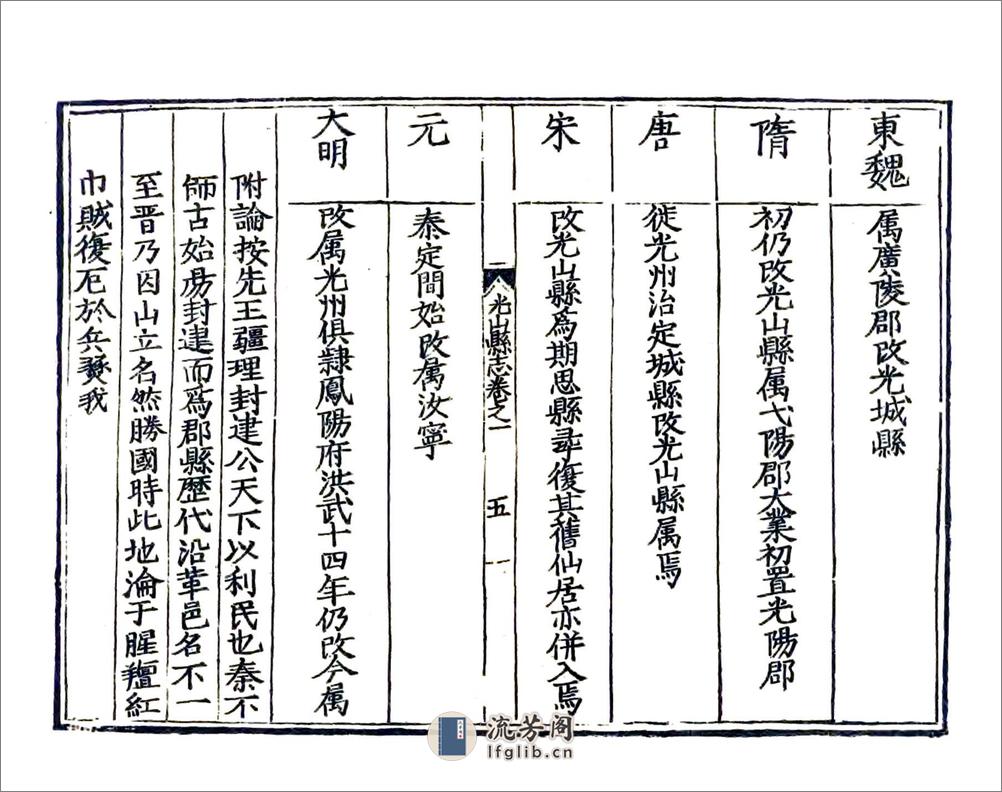 東魏 属廣陵郡改光城縣
隋 初仍改光山縣属弋陽郡大業初置光陽郡
唐 徙光州治定城縣改光山縣属焉
宋 改光山縣爲期思縣尋復其舊仙居亦併入焉
光山縣志卷之一 五
元 泰定間始改属汝寧
大明 改属光州俱隸鳳陽府洪武十四年仍改今属
附論按先王疆理封建公天下以利民也秦不
師古始易封建而爲郡縣歷代沿革邑名不一
至晋乃因山立名然勝國時此地淪于腥羶紅
巾賊復厄於兵燹我
流芳阁
lfglib.cn